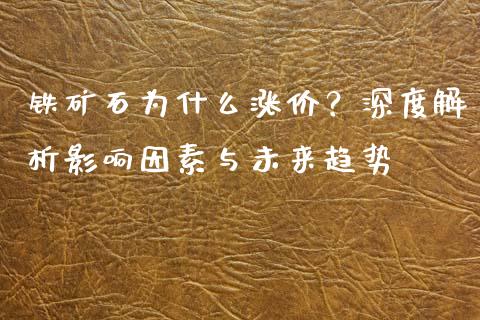 铁矿石为什么涨价？深度解
析影响因素与未来趋势